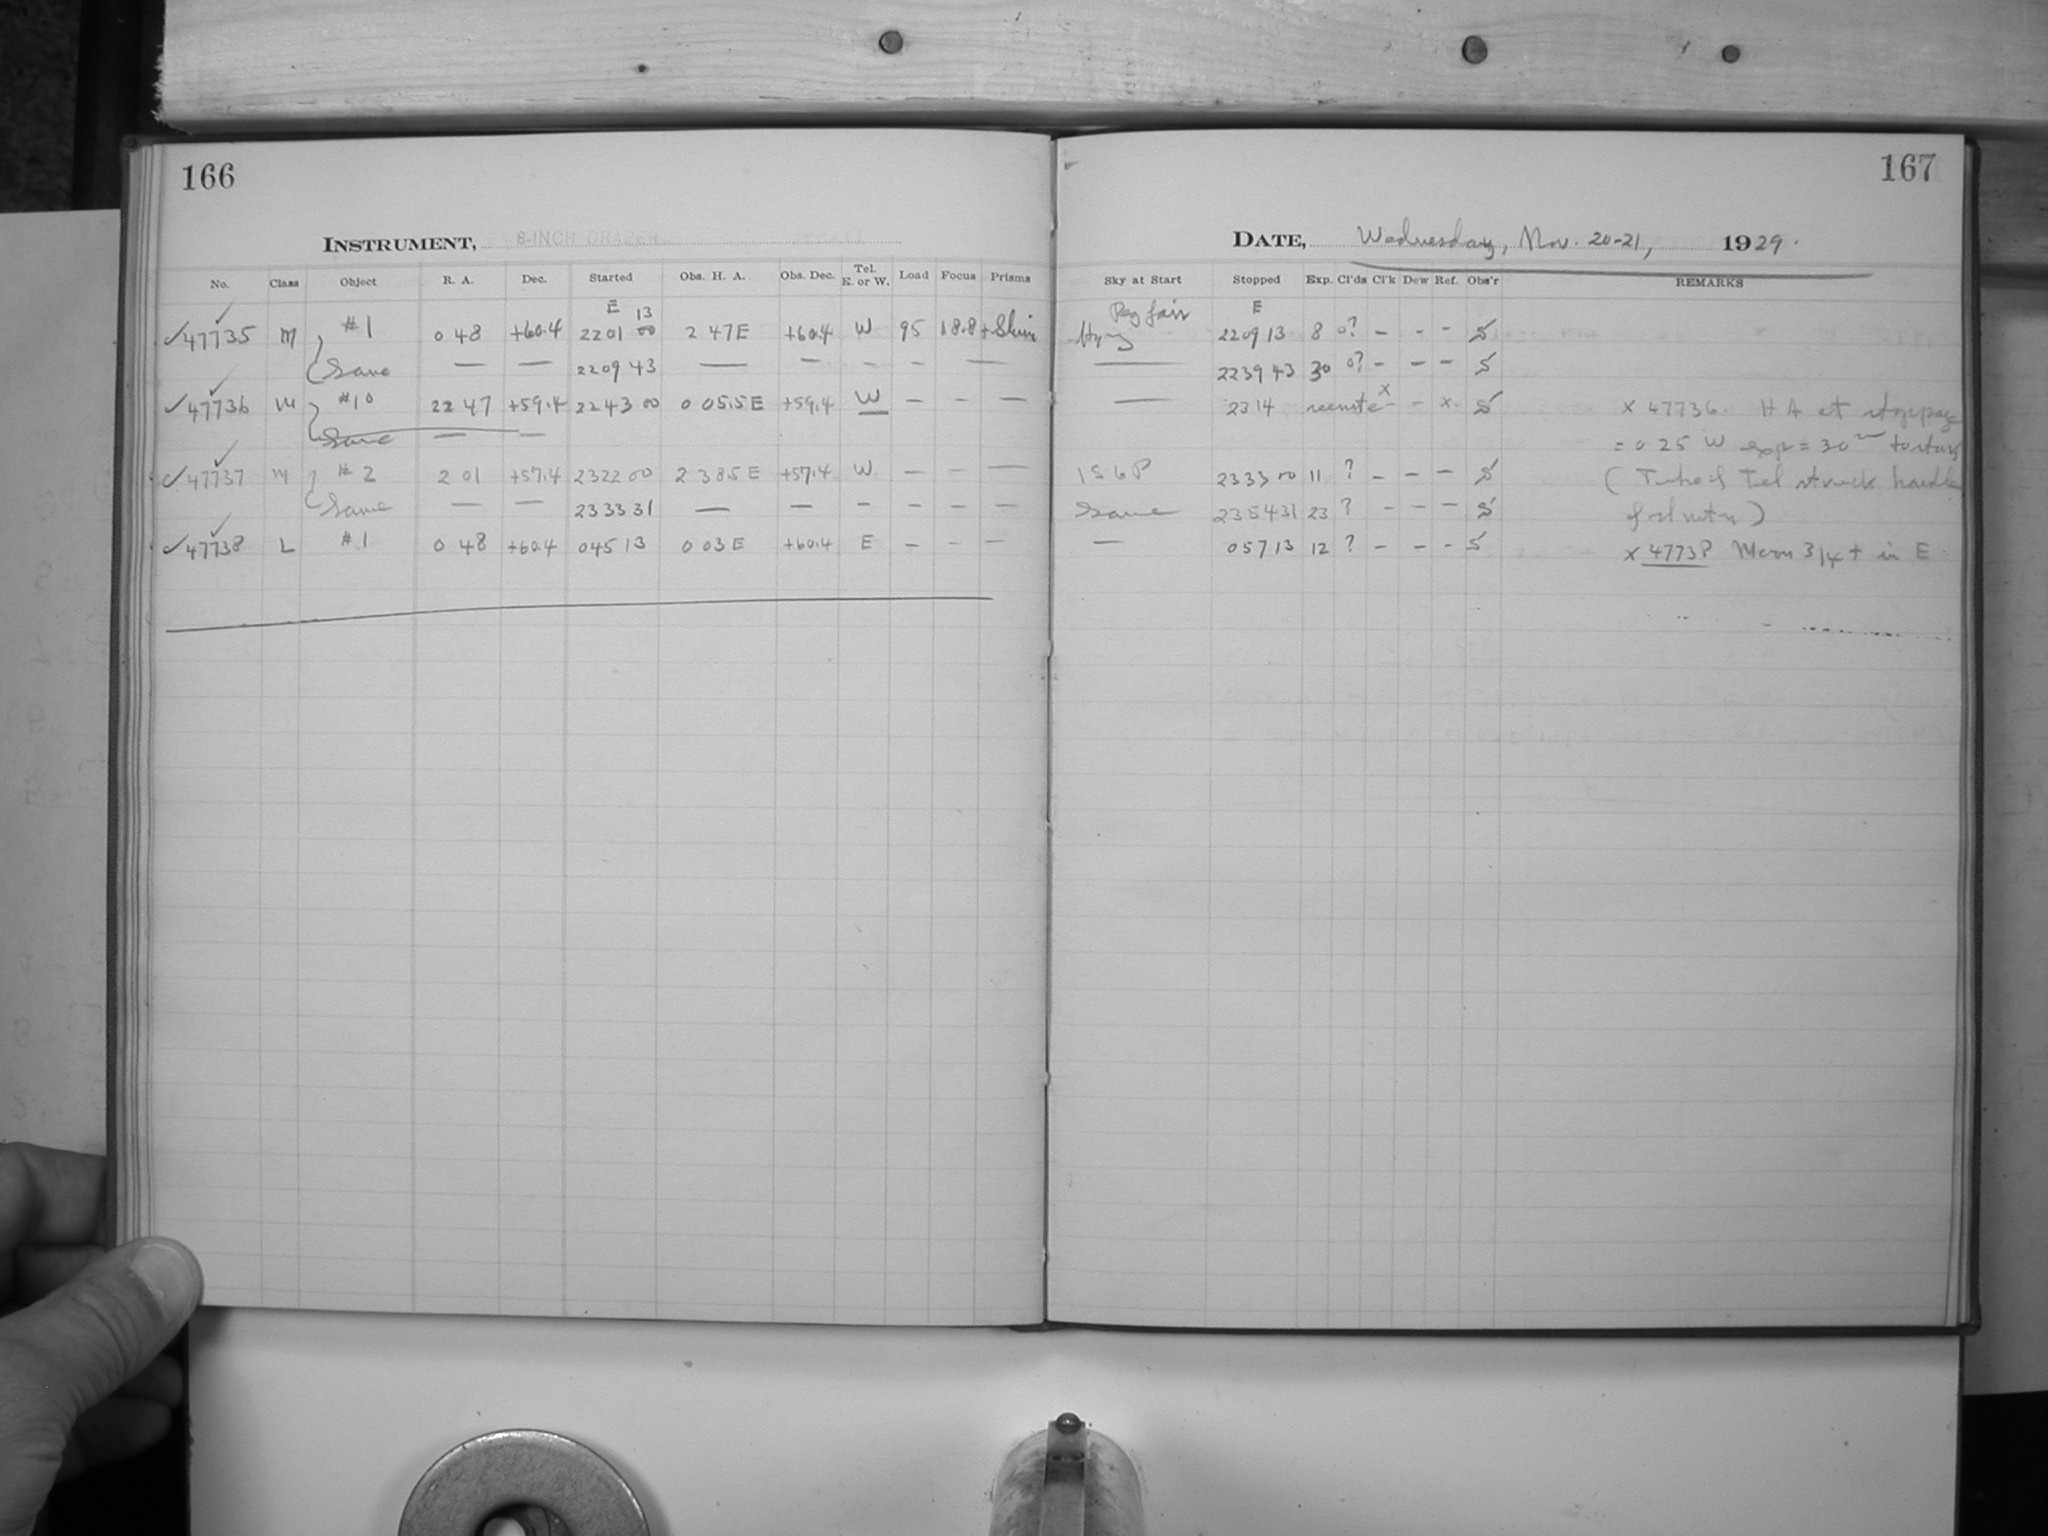 166
INSTRUMENT, 8-INCH DRAPER
No. Class Object R. A. Dec. Started Obs. H. A. Obs. Dec. Tel. E. or W. Load Focus Prisms
E 13
✓47735 M #1 0 48 +60.4 2201 00 2 47 E +60.4 W 95 18.8
Same — — 220943 — — — — — —
✓47736 M #10 22 47 +59.4 2243 00 0 05.5 E +59.4 W — — —
Same — —
✓47737 M #2 2 01 +57.4 2322 00 2 38.5 E +57.4 W — — —
Same — — 233331 — — — — — —
✓47738 L #1 0 48 +60.4 04513 0 03 E +60.4 E — — —
167
DATE, Wednesday, Nov. 20-21, 1929.
Sky at Start Stopped Exp. Cl'ds Cl'k Dew Ref. Obs'r REMARKS
fair E
Hazy 220913 8 0? — — — S
— 223943 30 0? — — — S
— 2314 x — — x S x 47736. H A at stoppage
= 0 25 W exp = 30m
1 S 6 P 2333 00 11 ? — — — S (Tube of Tel struck handle
Same 235431 23 ? — — — S
— 05713 12 ? — — — S x 47738 Moon 3/4 + in E